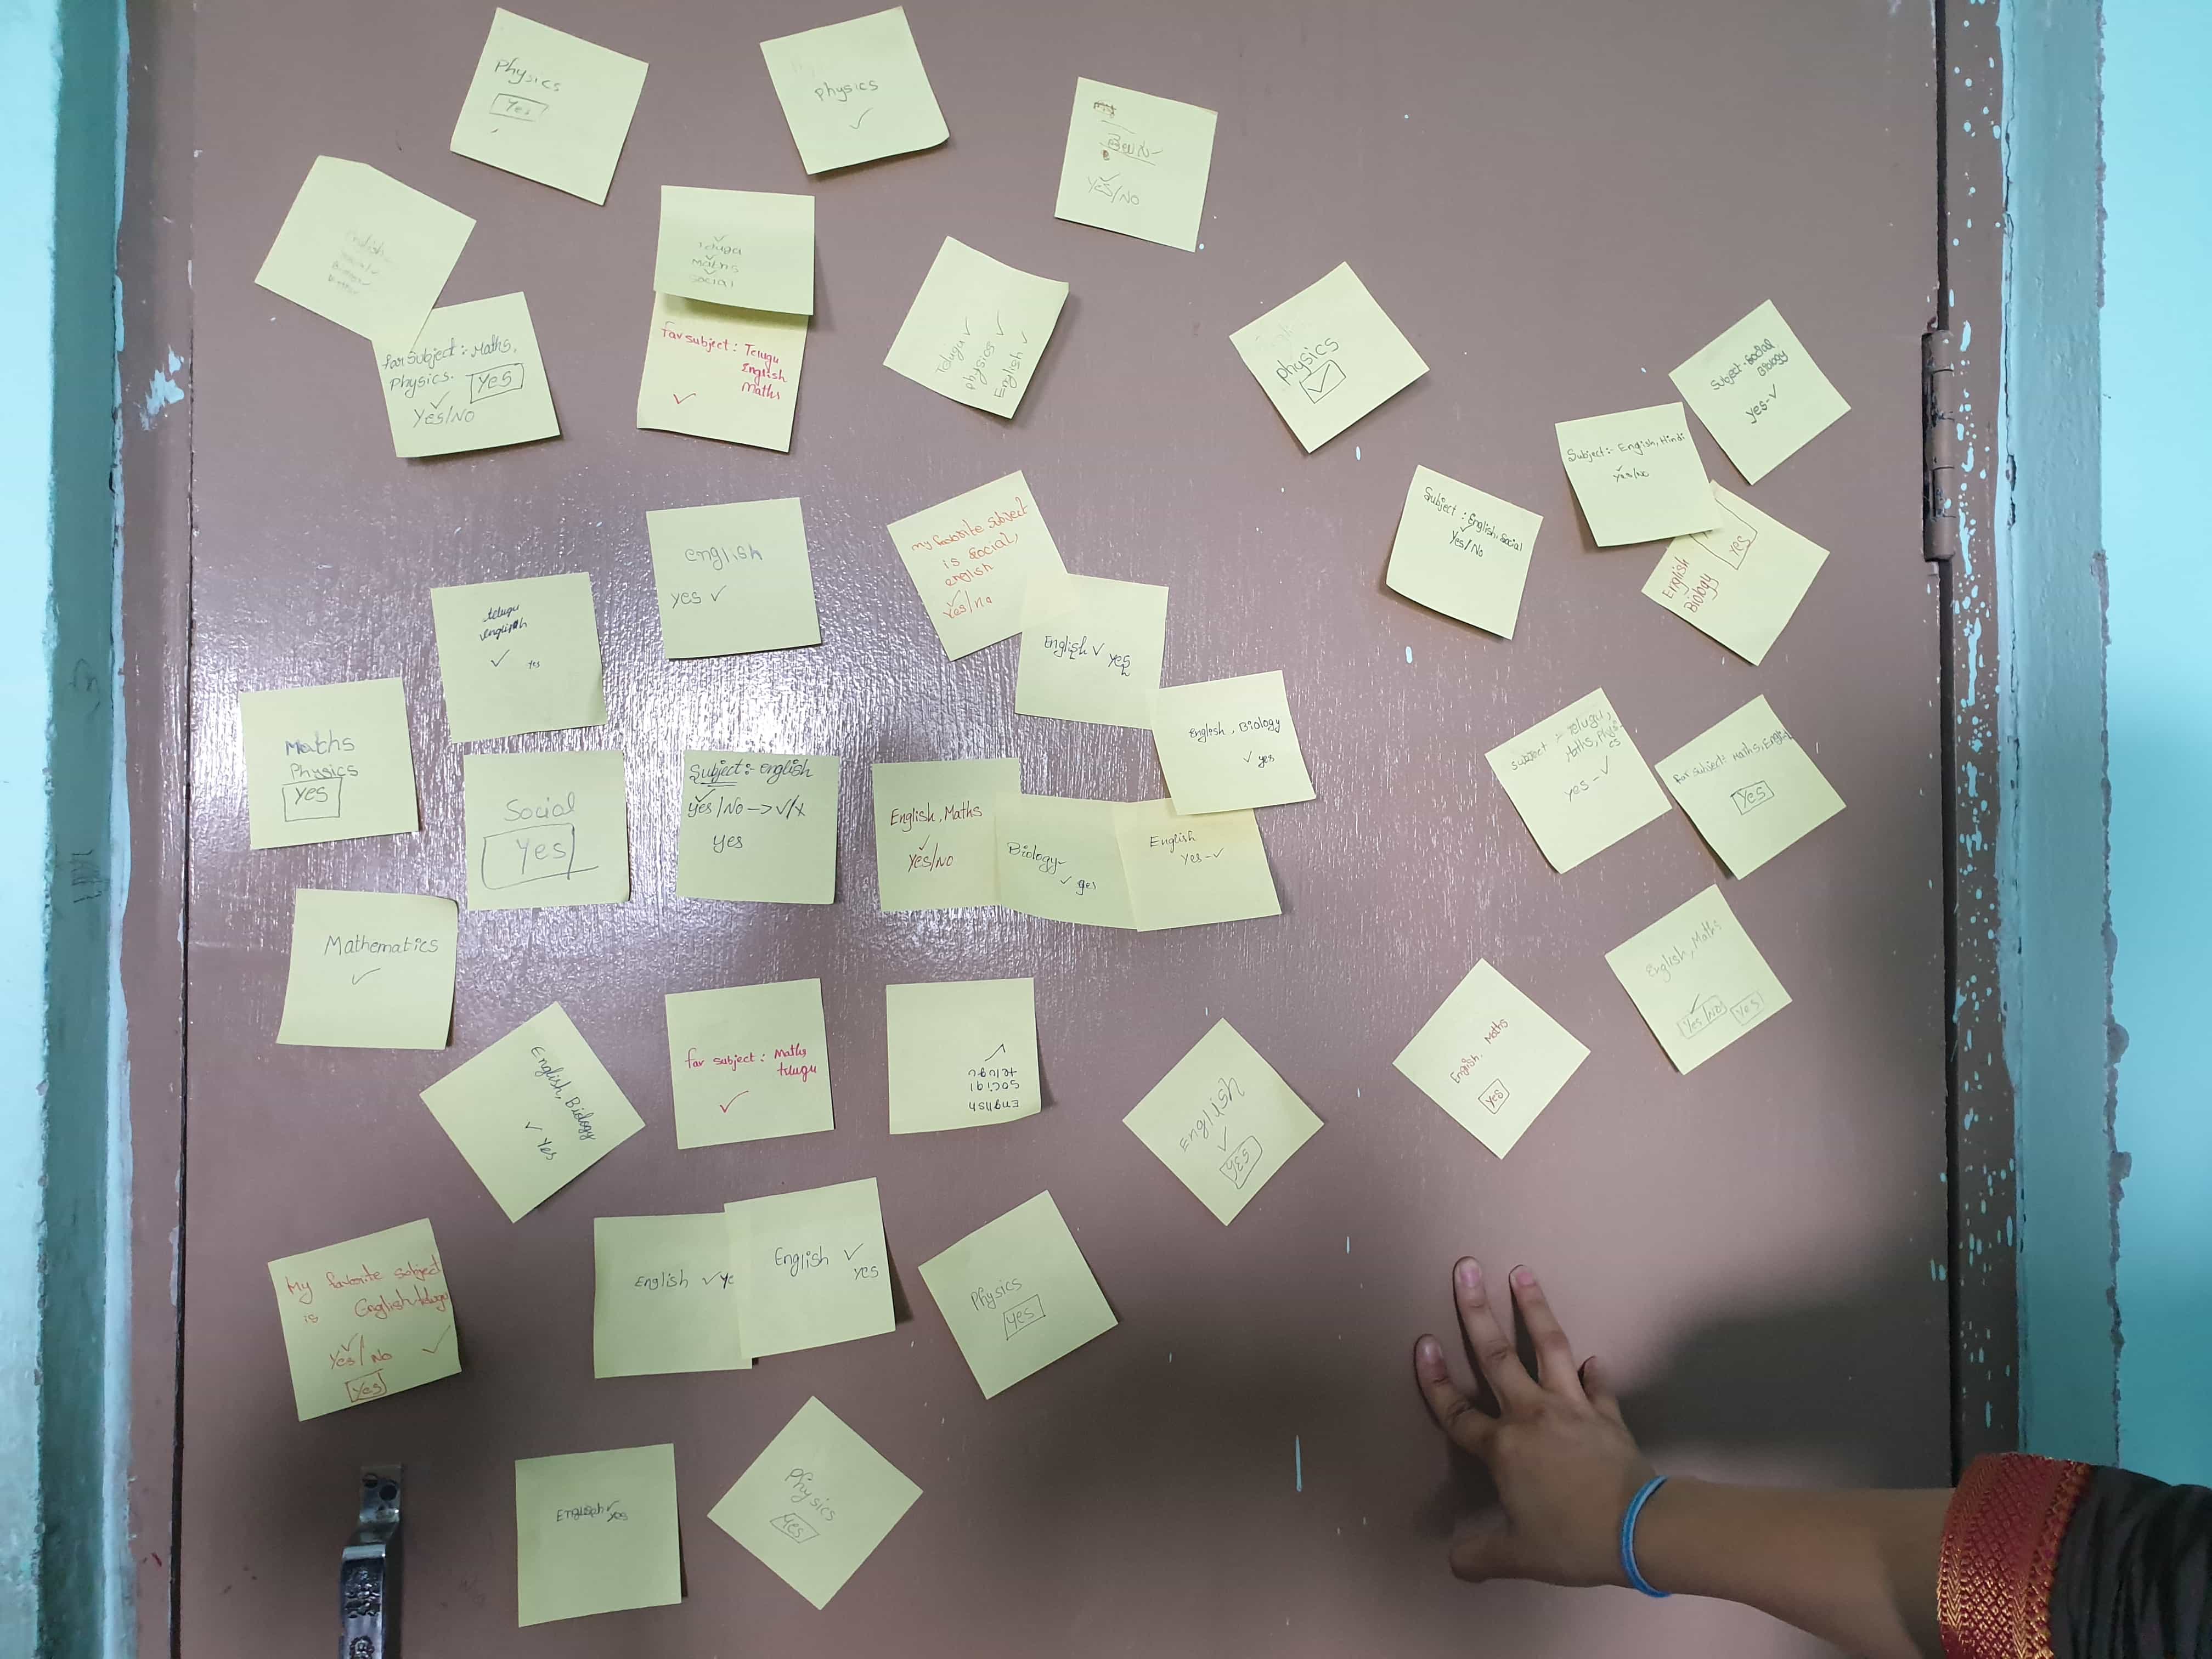 Physics
Yes
physics
✓
Yes/No
English
✓
Telugu
✓
Maths
✓
Social
fav subject :- Maths,
Physics. Yes
✓
Yes/No
Fav subject : Telugu
English
Maths
✓
Telugu ✓
physics ✓
English ✓
physics
✓
Subject - Social
Biology
yes - ✓
Subject :- English, Hindi
✓
Yes/No
Subject : English, Social
✓
Yes/No
English
Biology
yes
english
yes ✓
my favorite subject
is social,
english
✓
Yes/no
telugu
english
✓ yes
English ✓ yes
English, Biology
✓ yes
Maths
Physics
Yes
Social
Yes
Subject :- english
✓
yes/No -> ✓/x
yes
English, Maths
✓
Yes/No
Biology -
✓ yes
English
yes - ✓
subject :- Telugu,
Maths, Physi
cs
yes - ✓
Fav subject: Maths, English
Yes
Mathematics
✓
English, Maths
✓
Yes/No Yes
English, Biology
✓ Yes
fav subject : Maths
telugu
✓
English
social
telugu
✓
English
✓
yes
English, Maths
yes
My favorite subject
is English, telugu
✓
Yes/No ✓
Yes
English ✓ ye
English ✓
yes
Physics
yes
English ✓ yes
Physics
Yes